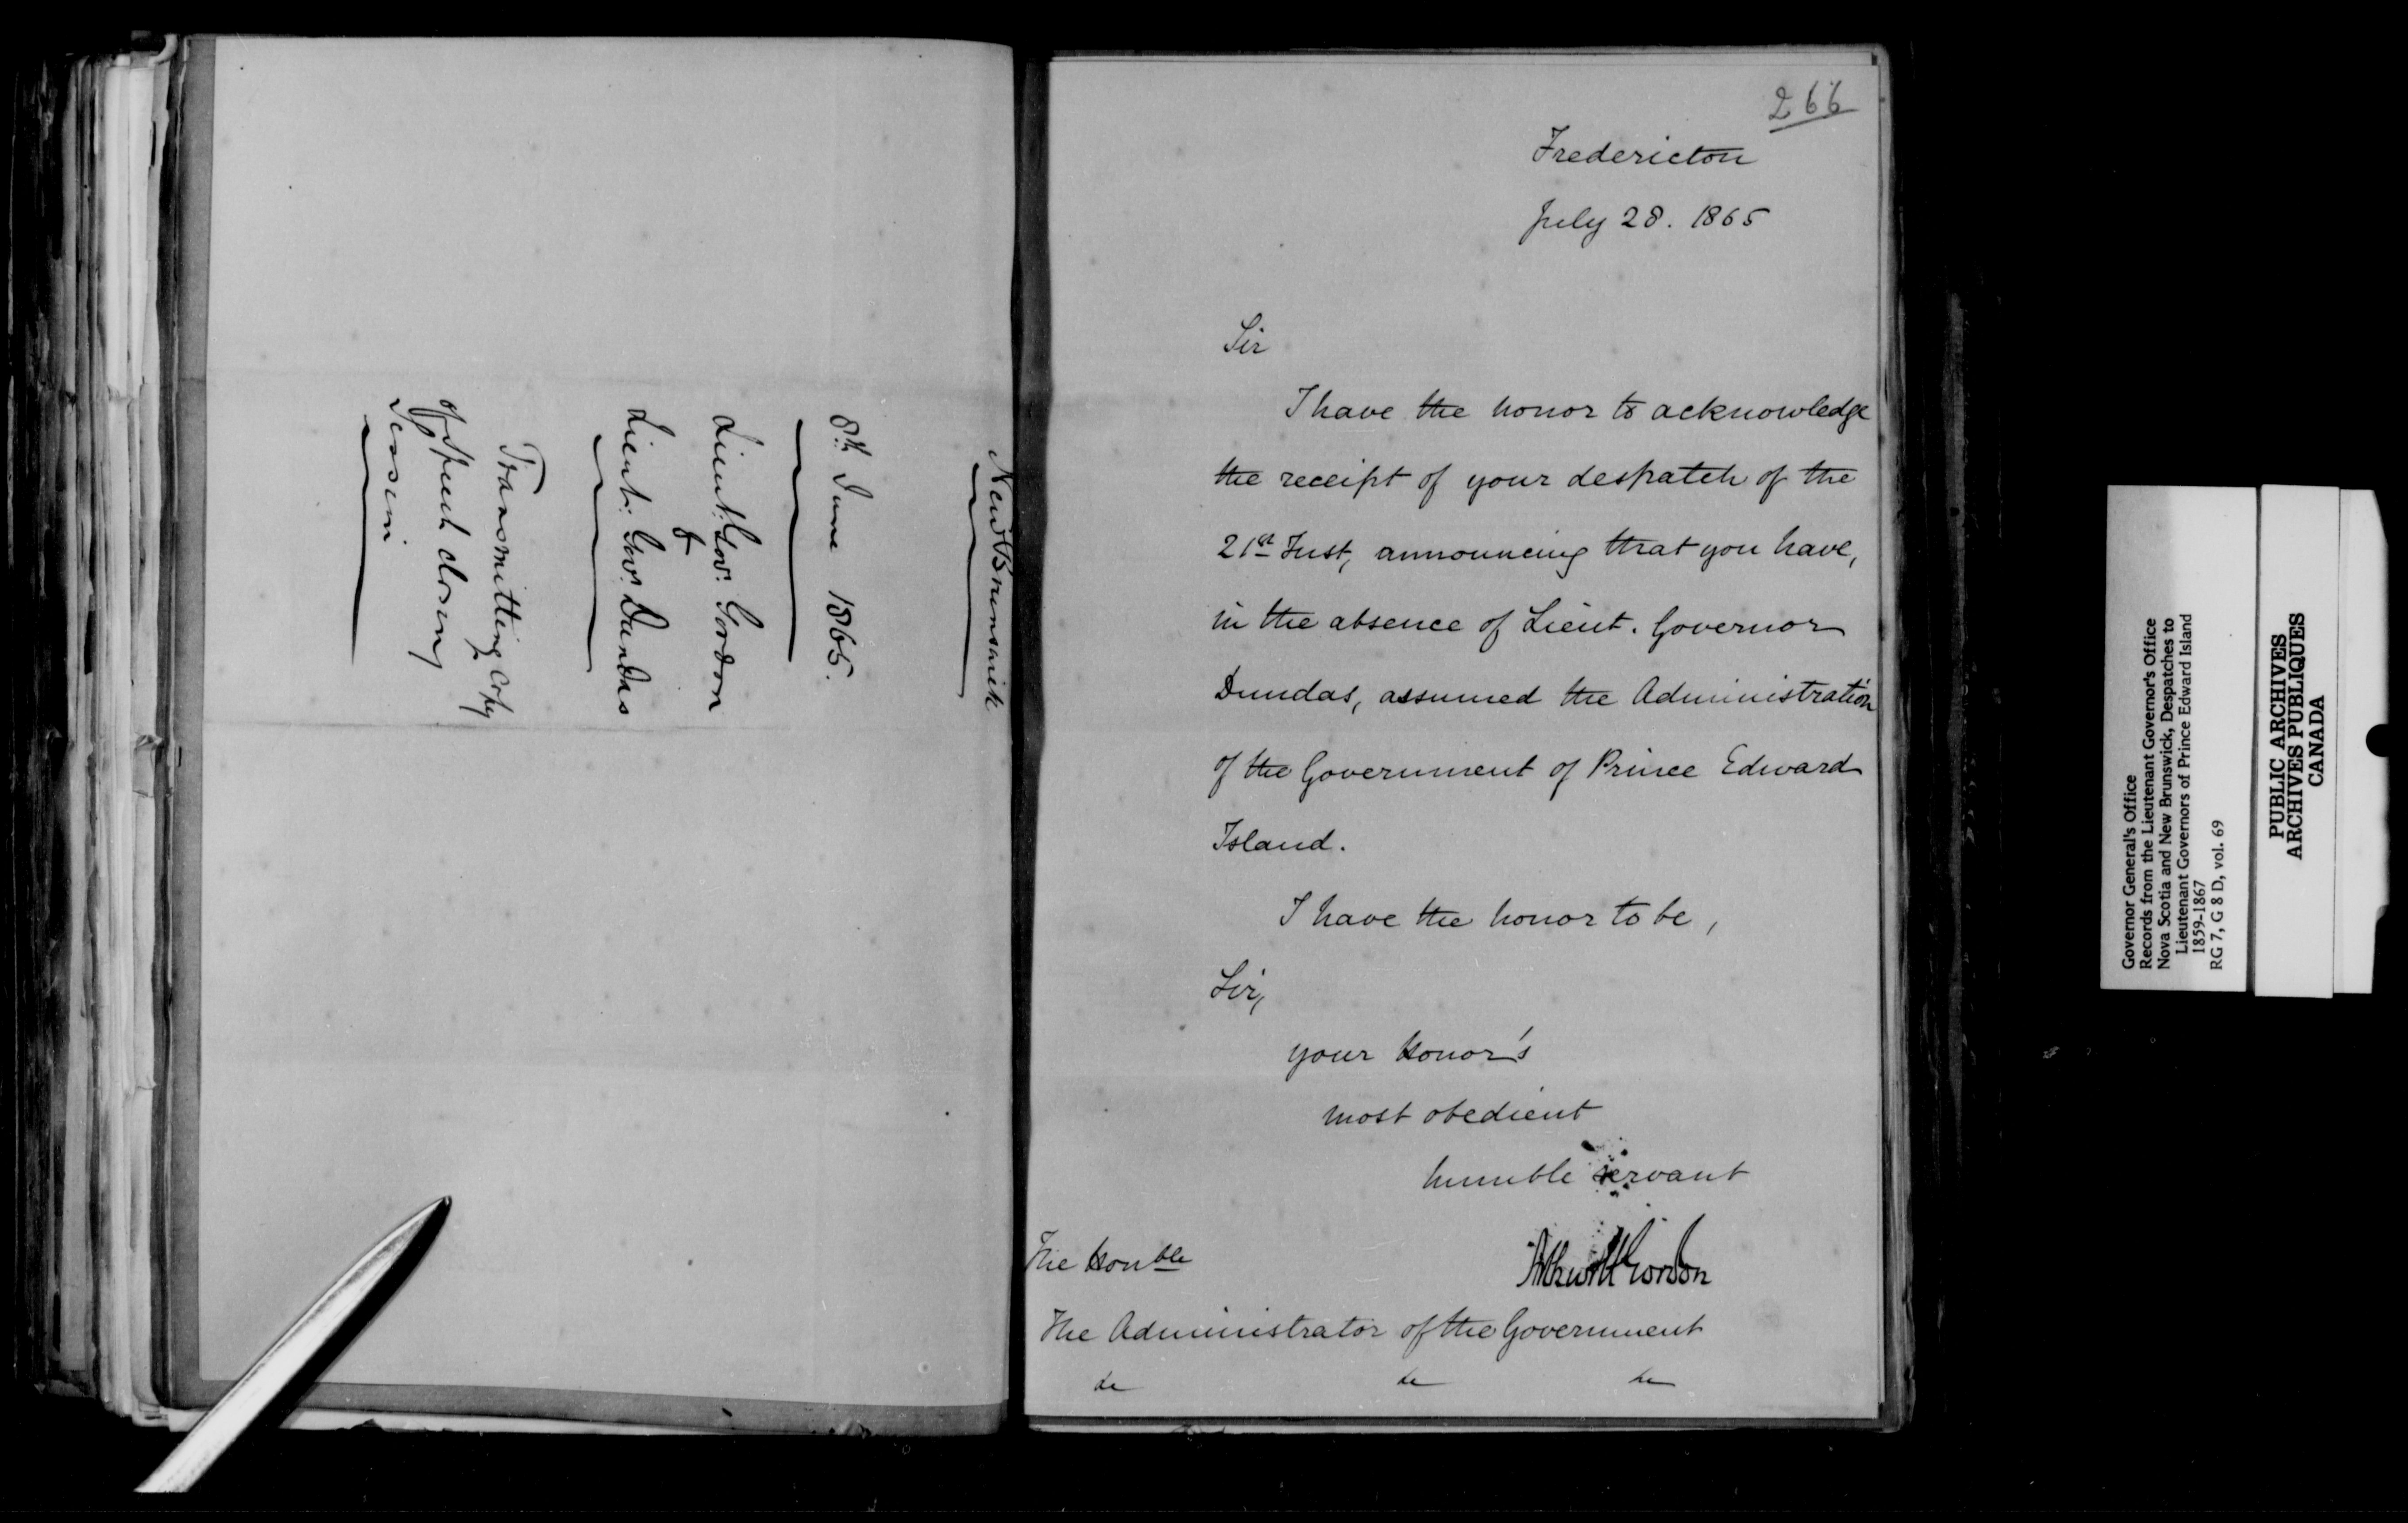 New Brunswick
8th June 1865.
Lieut. Gov. Gordon
to
Lieut. Gov. Dundas
Transmitting Copy
of Speech closing
Session
266
Fredericton
July 28. 1865
Sir
I have the honor to acknowledge
the receipt of your despatch of the
21st Inst, announcing that you have,
in the absence of Lieut. Governor
Dundas, assumed the Administration
of the Government of Prince Edward
Island.
I have the honor to be,
Sir,
your honor's
most obedient
humble servant
Arthur H Gordon
The Honble
The Administrator of the Government
&c &c &c
Governor General's Office
Records from the Lieutenant Governor's Office
Nova Scotia and New Brunswick, Despatches to
Lieutenant Governors of Prince Edward Island
1859-1867
RG 7, G 8 D, vol. 69
PUBLIC ARCHIVES
ARCHIVES PUBLIQUES
CANADA